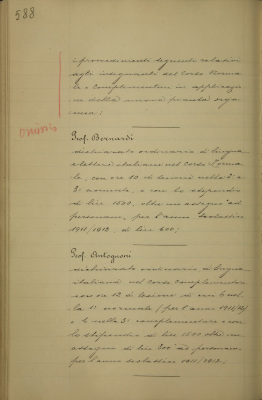 588
i provvedimenti seguenti relativi
agli insegnanti del Corso Norma
le e Complementare in applicazio
ne della nuova pianta orga
nica:
omissis
Prof. Bernardi
dichiarato ordinario di lingua
e lettere italiane nel Corso Norma
le, con ore 10 di lezioni nella 2ª e
3ª normale, e con lo stipendio
di lire 1800, oltre un assegno ad
personam, per l'anno scolastico
1911/1912, di lire 600;
Prof. Antognoni
dichiarato ordinario di lingua
italiana nel Corso Complementare
con ore 12 di lezione di cui 6 nel
la 1ª normale (per l'anno 1911/12)
e 6 nella 3ª complementare e con
lo stipendio di lire 1500 oltre un
assegno di lire 300 ad personam
per l'anno scolastico 1911/1912.